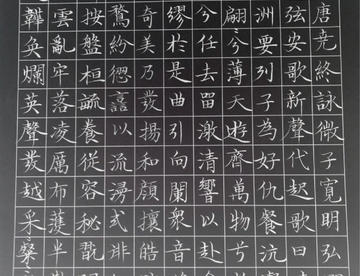 唐堯終詠微子寬明弘
弦安歌新聲代起歌曰
洲要列子為好仇餐沆
翩々薄天遊齊萬物兮
兮任去留激清響以赴
繆於是曲引向闌衆音
奇美乃發揚和顏攘皓
鶩紛譶以流漫或徘
按盤桓毓養從容秘翫
雲亂牢落凌厲布濩半
韡奐爛英聲發越采粲